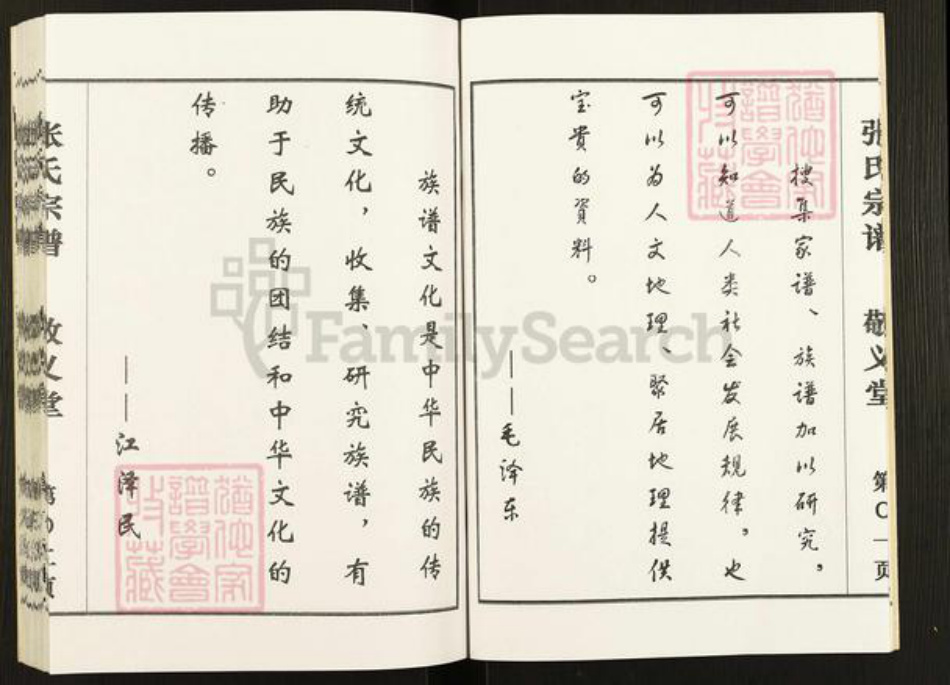 张氏宗谱 敬义堂 第〇一页
搜集家谱、族谱加以研究，
可以知道人类社会发展规律。也
可以为人文地理、聚居地理提供
宝贵的資料。
——毛泽东
族谱文化是中华民族的传
统文化，收集、研究族谱，有
助于民族的团结和中华文化的
传播。
——江泽民
张氏宗谱 敬义堂
猶他家
譜學會
收藏
猶他家
譜學會
收藏
FamilySearch